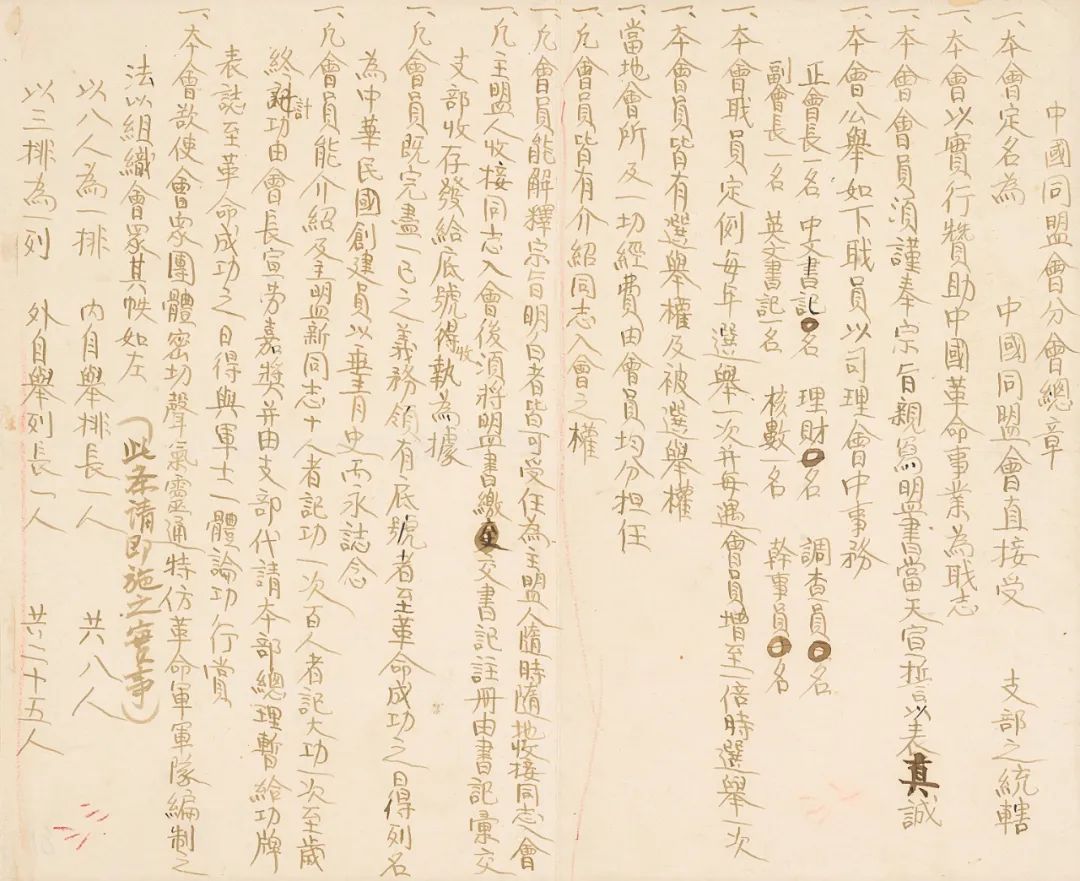 中國同盟會分會總章
一、本會定名為　中國同盟會直接受　支部之統轄
一、本會以實行贊助中國革命事業為職志
一、本會會員須謹奉宗旨親寫盟書當天宣誓以表真誠
一、本會公舉如下職員以司理會中事務
正會長一名　中文書記〇名　理財〇名　調查員〇名
副會長一名　英文書記一名　核數一名　幹事員〇名
一、本會職員定例每年選舉一次并每遇會員增至一倍時選舉一次
一、本會會員皆有選舉權及被選舉權
一、當地會所及一切經費由會員均分担任
一、凡會員皆有介紹同志入會之權
一、凡會員能解釋宗旨明白者皆可受任為主盟人隨時隨地收接同志入會
一、凡主盟人收接同志入會後須將明書繳交書記註冊由書記彙交
支部收存發給底號得收執為據
一、凡會員既完盡一己之義務領有底號者至革命成功之日得列名
為中華民國創建員以垂青史而永誌念
一、凡會員能介紹及主盟新同志十人者記功一次百人者記大功一次至歲
終計功由會長宣勞嘉獎并由支部代請本部總理暫給功牌
表誌至革命成功之日得與軍士一體論功行賞
一、本會欲使會眾團體密切聲氣靈通特仿革命軍軍隊編制之
法以組織會眾其帙如左　（此条請即施之实事）
以八人為一排　內自舉排長一人　共八人
以三排為一列　外自舉列長一人　共二十五人